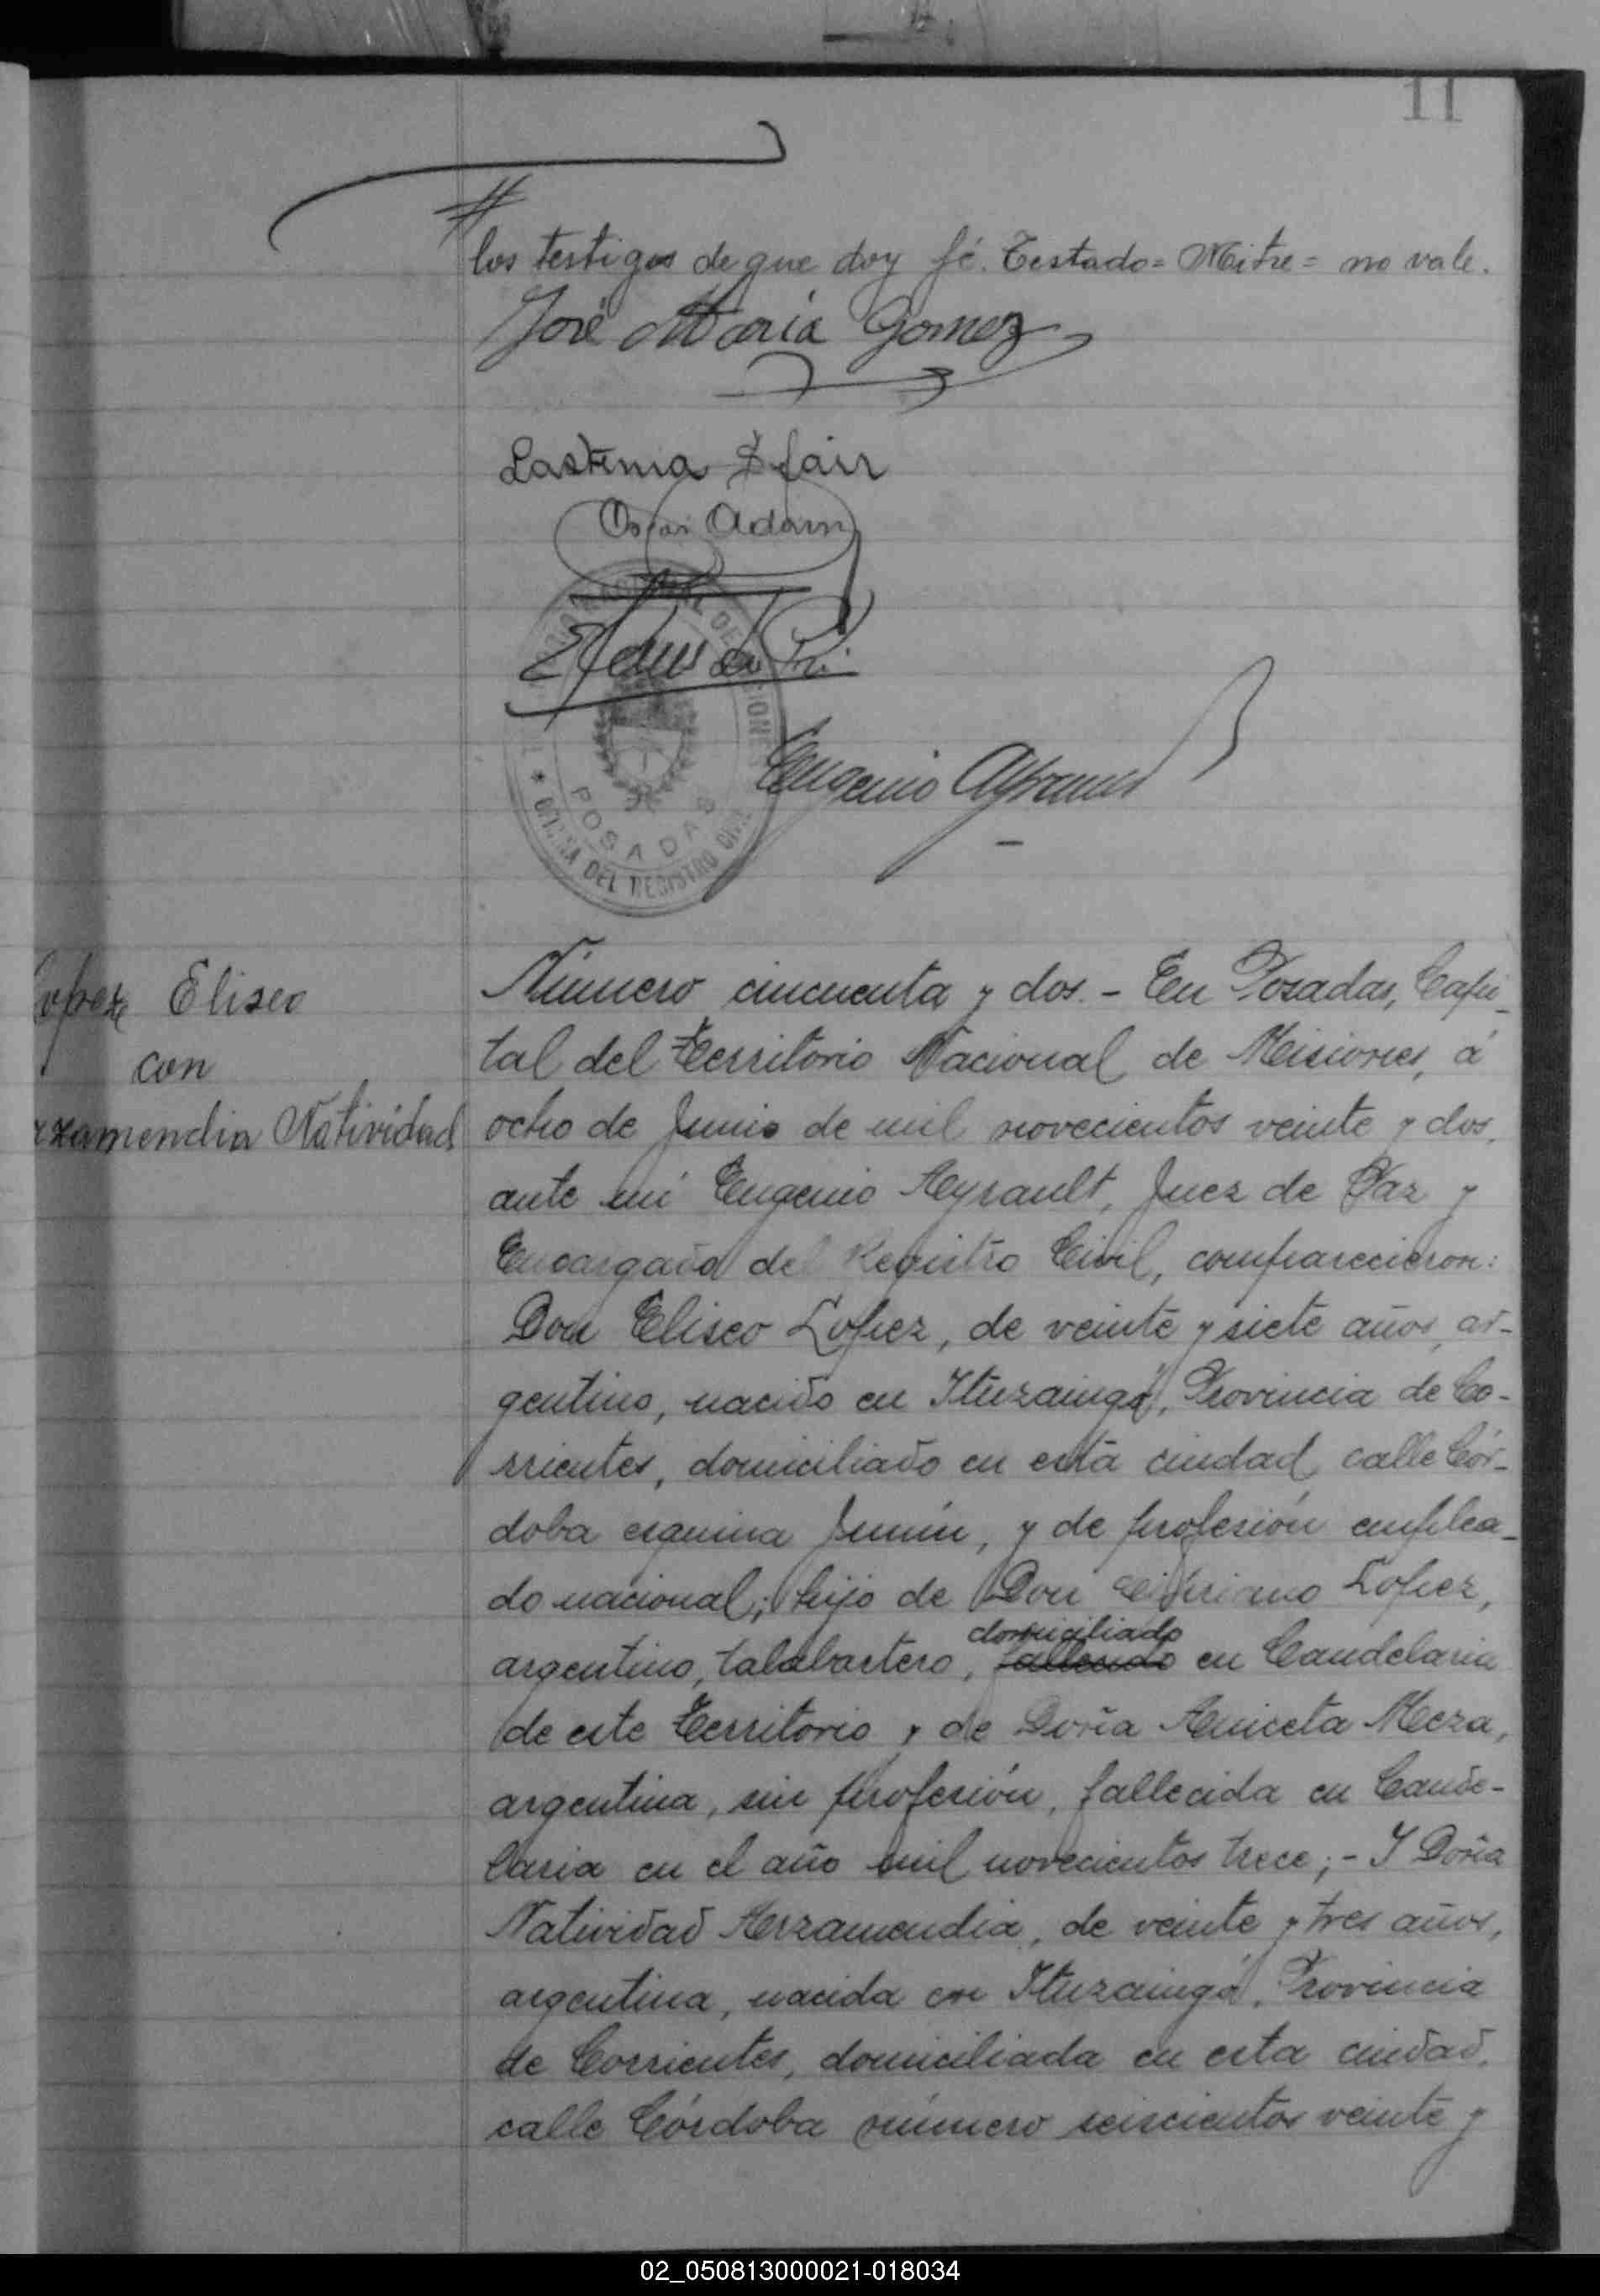 11
los testigos de que doy fé. Testado= Mitre= no vale.
José María Gomez
Lastenia
Oscar Adam
POSADAS
OFICINA DEL REGISTRO CIVIL
Eugenio Ayrault
Lopez Eliseo
con
rzamendia Natividad
Número cincuenta y dos.- En Posadas, Capi-
tal del Territorio Nacional de Misiones, á
ocho de Junio de mil novecientos veinte y dos,
ante mí Eugenio Ayrault, Juez de Paz y
Encargado del Registro Civil, comparecieron:
Don Eliseo Lopez, de veinte y siete años, ar-
gentino, nacido en Ituzaingó, Provincia de Co-
rrientes, domiciliado en esta ciudad, calle Cór-
doba esquina Junín, y de profesión emplea-
do nacional; hijo de Don Cipriano Lopez,
domiciliado
argentino, talabartero, fallecido en Candelaria
de este Territorio y de Doña Aniceta Meza,
argentina, sin profesión, fallecida en Cande-
laria en el año mil novecientos trece;- Y Doña
Natividad Arzamendia, de veinte y tres años,
argentina, nacida en Ituzaingó, Provincia
de Corrientes, domiciliada en esta ciudad,
calle Córdoba número seiscientos veinte y
02_050813000021-018034